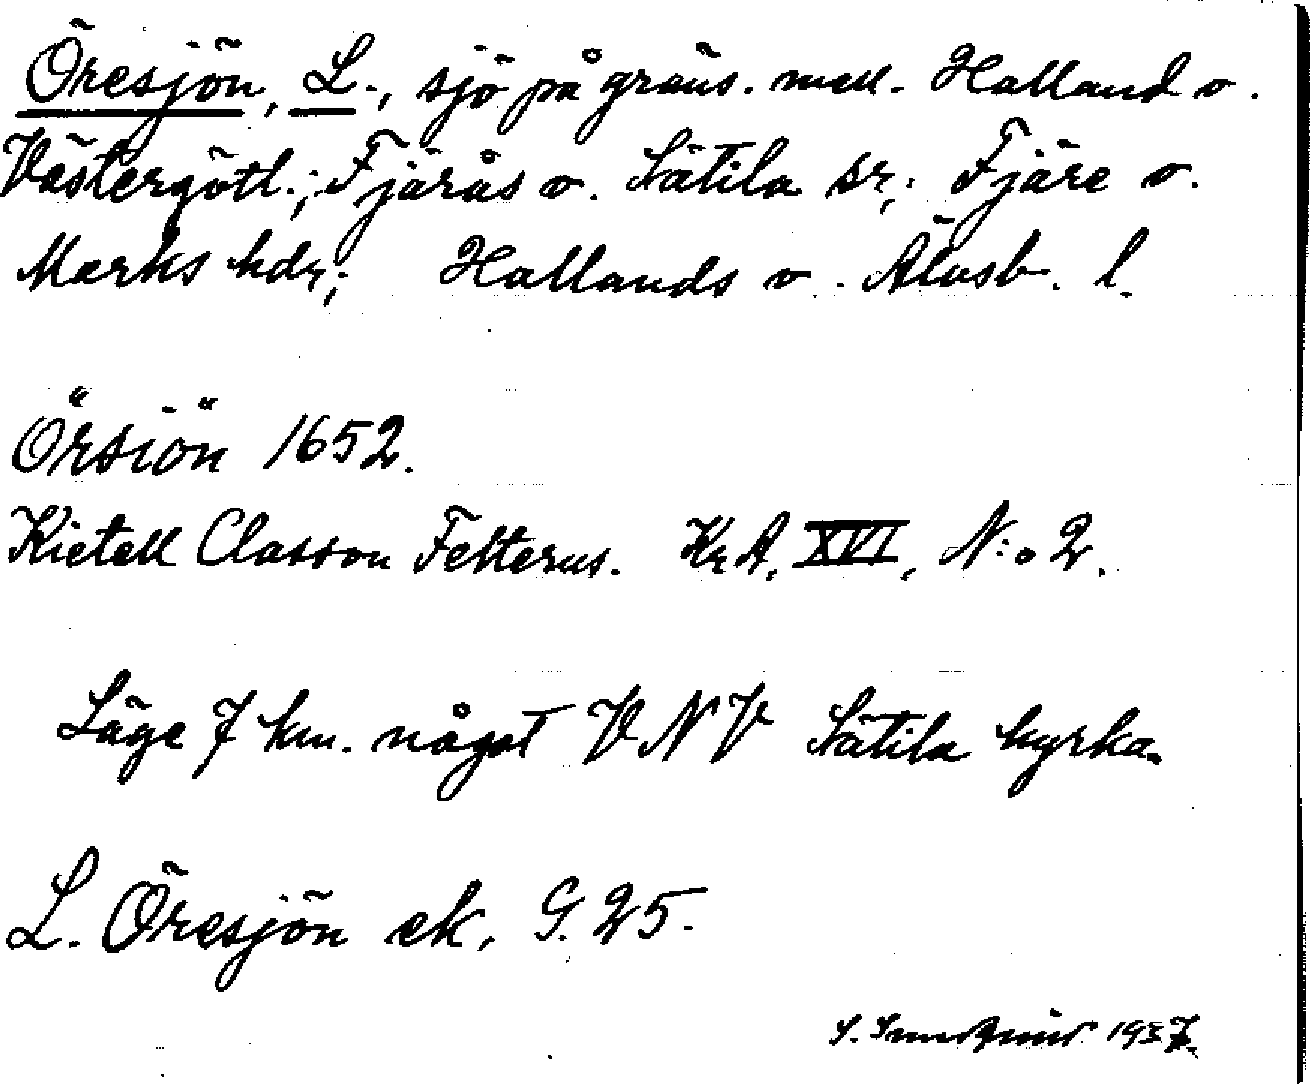 Öresjön, L., sjö på gräns. mell. Halland o.
Västergötl.; Fjärås o. Sätila sr; Fjäre o.
Marks hdr; Hallands o. Älvsb. l.
Örsiön 1652.
Kietell Classon Felterus. Kr A, XVI, N:o 2.
Läge 7 km. något VNV Sätila kyrka.
L. Öresjön ek. G. 25.
S. 1937.